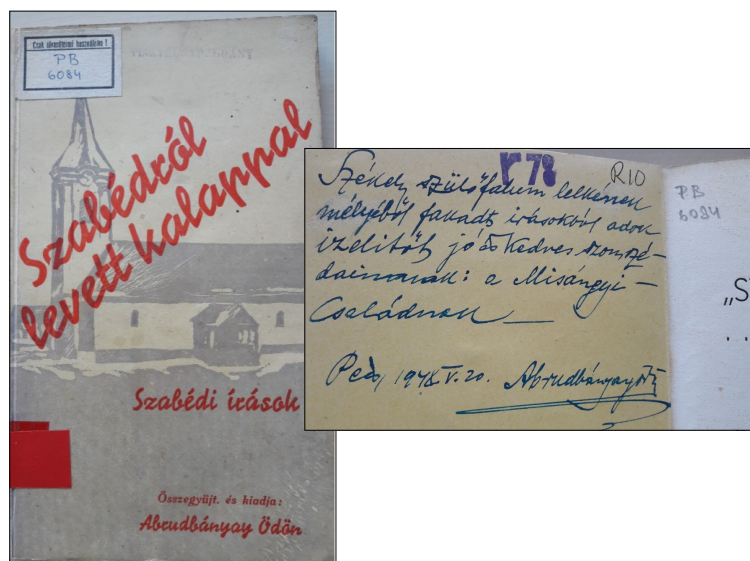 Csak olvasótermi használatra !
PB
6084
Szabédról
levett kalappal
Szabédi írások
Összegyüjt. és kiadja:
Abrudbányay Ödön
r 78
R10
Székely szülőfalum lelkének
mélyéből fakadt irásokból adok
izelitőt jó és kedves szomszé-
daimnak: a Misángyi-
Családnak —
1948. V. 20. Abrudbányay
PB
6084
„S
. .